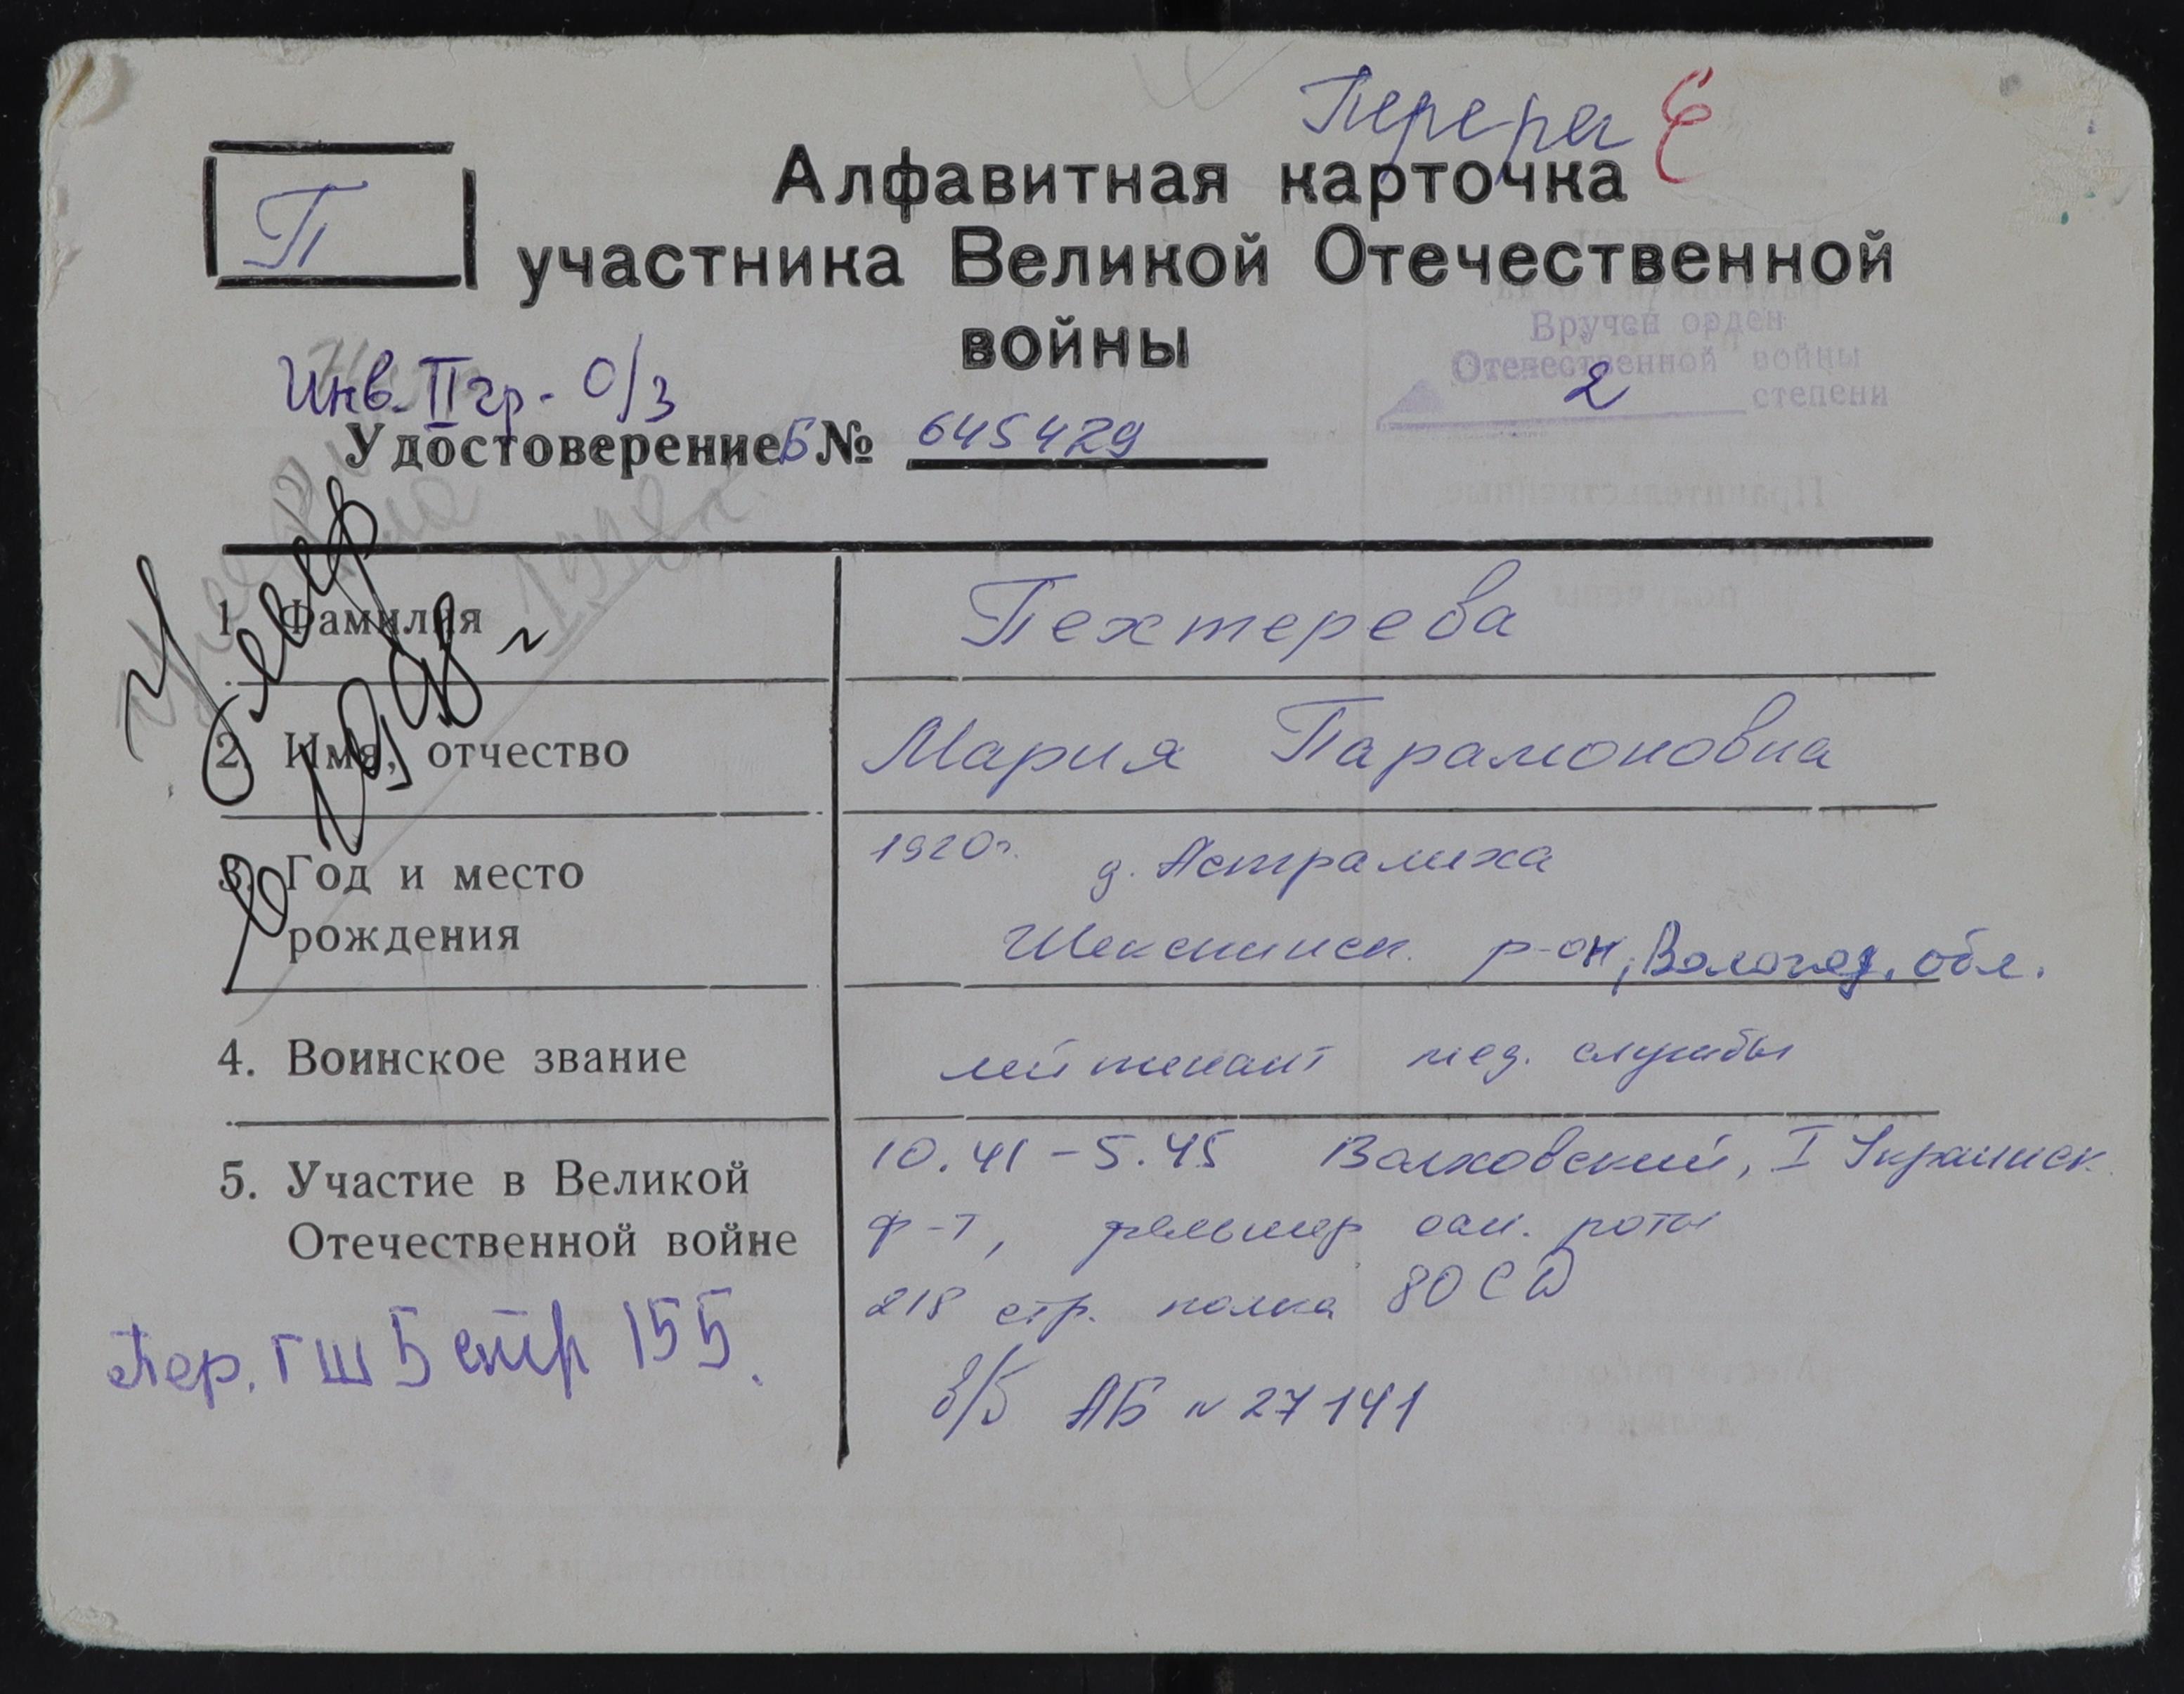 Перерег Е
П
Алфавитная карточка
участника Великой Отечественной
войны
Вручен орден
Отечественной войны
2 степени
Инв. II гр. О/З
Удостоверение Б № 645429
умер
10,98 г
1. Фамилия Пехтерева
2. Имя, отчество Мария Парамоновна
3. Год и место 1920г. д. Астралиха
рождения Шекснинск. р-он, Вологод. обл.
4. Воинское звание лейтенант мед. службы
5. Участие в Великой 10.41-5.45 Волховский, I Украинск
Отечественной войне ф-т, фельшер сан. роты
218 стр. полка 80 СД
Пер. ГШ Б стр 155.
в/б АБ № 27141